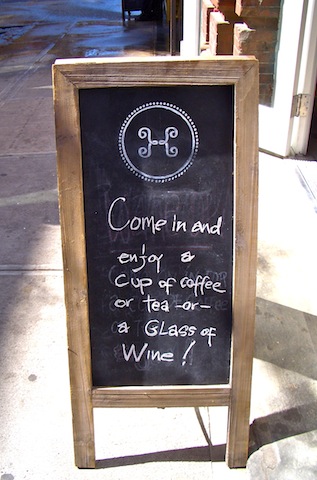 H
Come in and
enjoy a
cup of coffee
or tea -or-
a Glass of
Wine!